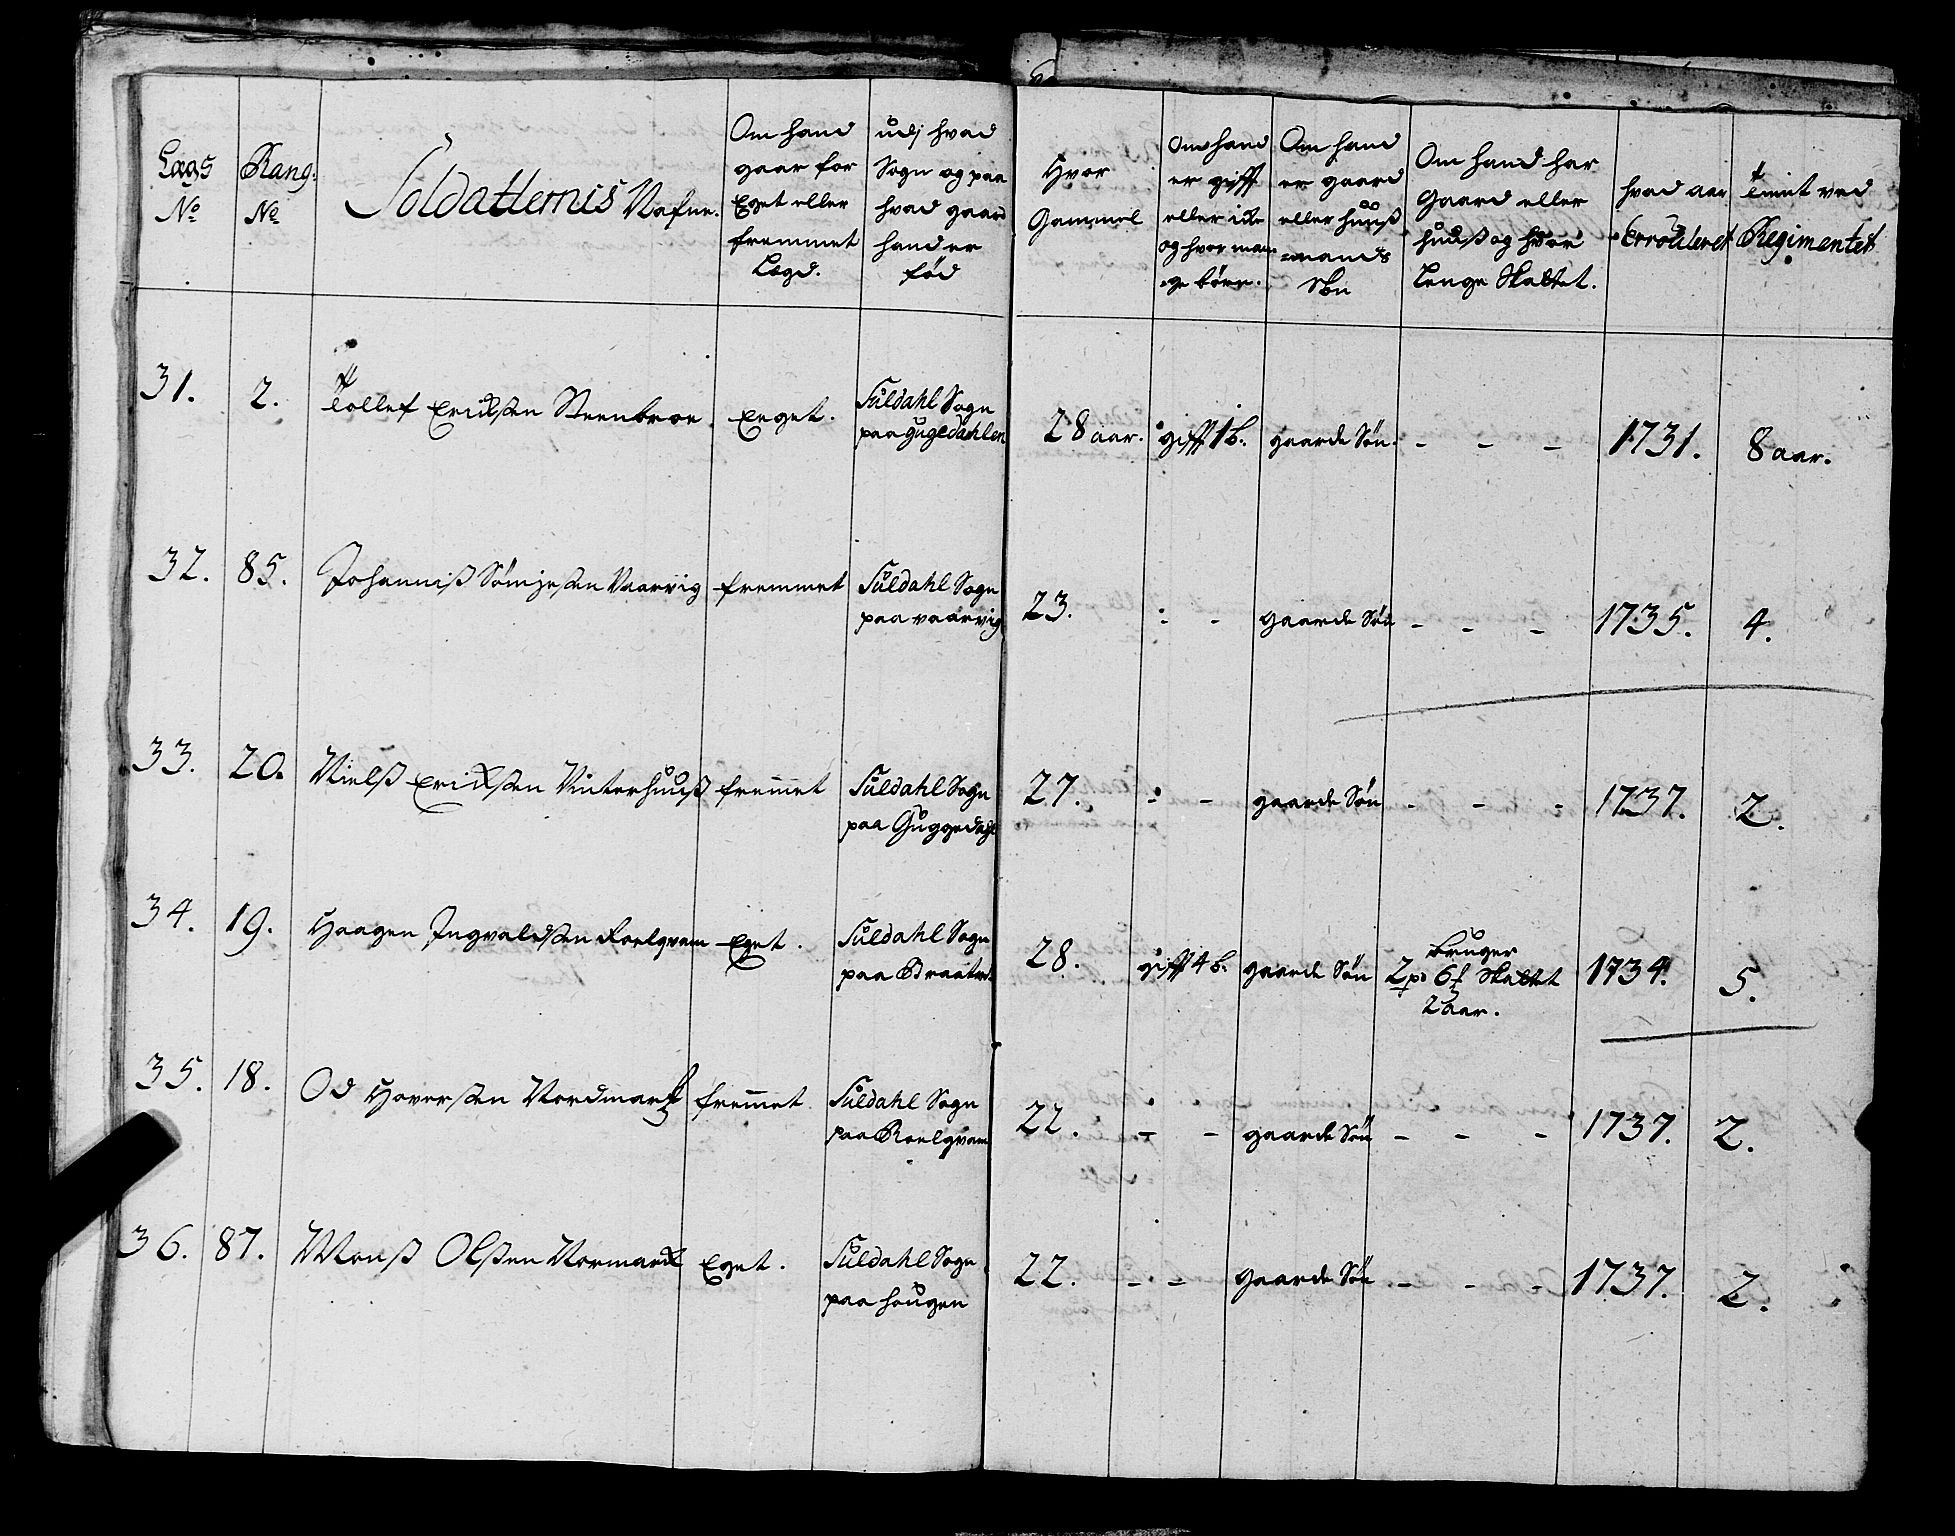 Lægs No
Rang: No
Soldatternis Nafne.
Om hand
gaar for
Eget eller
fremmet
Lægd.
udj hvad
Sogn og paa
hvad gaard
hand er
fød
Hvor
Gammel
Om hand
er gifft
eller icke
og hvor man-
ge börn.
Om hand
er gaard
eller huuß
mands
Sön
Om hand har
Gaard eller
huuß og hvor
Lenge Skattet.
hvad aar
Enroulleret
Tient ved
Regimentet
31. 2. Tollef Ericksen Steenbroe Eeget. Suldahl Sogn
paa gugedahlen
28 aar. gifft 1 b. gaarde Sön. - - - 1731. 8 aar.
32. 85. Johanniß Vaarvig fremmet Suldahl Sogn
paa vaarvig
23. - - gaarde Sön - - - 1735. 4.
33. 20. Nielß Ericksen Vinterhuuß fremmet Suldahl Sogn
paa Guggedahl
27. - - gaarde Sön - - - 1737. 2.
34. 19. Haagen Ingvaldsen Roelqvam Eget. Suldahl Sogn
paa Braatvet
28. gifft 4 b. gaarde Sön Bruger
2 pd 6 Skattet
2 aar. 1734. 5.
35. 18. Od Haversen Nordmarck fremmet Suldahl Sogn
paa Roelqvam
22. - - gaarde Sön - - - 1737. 2.
36. 87. Monß Olsen Normarck Eget. Suldahl Sogn
paa hougen
22. - - gaarde Sön - - - 1737. 2.